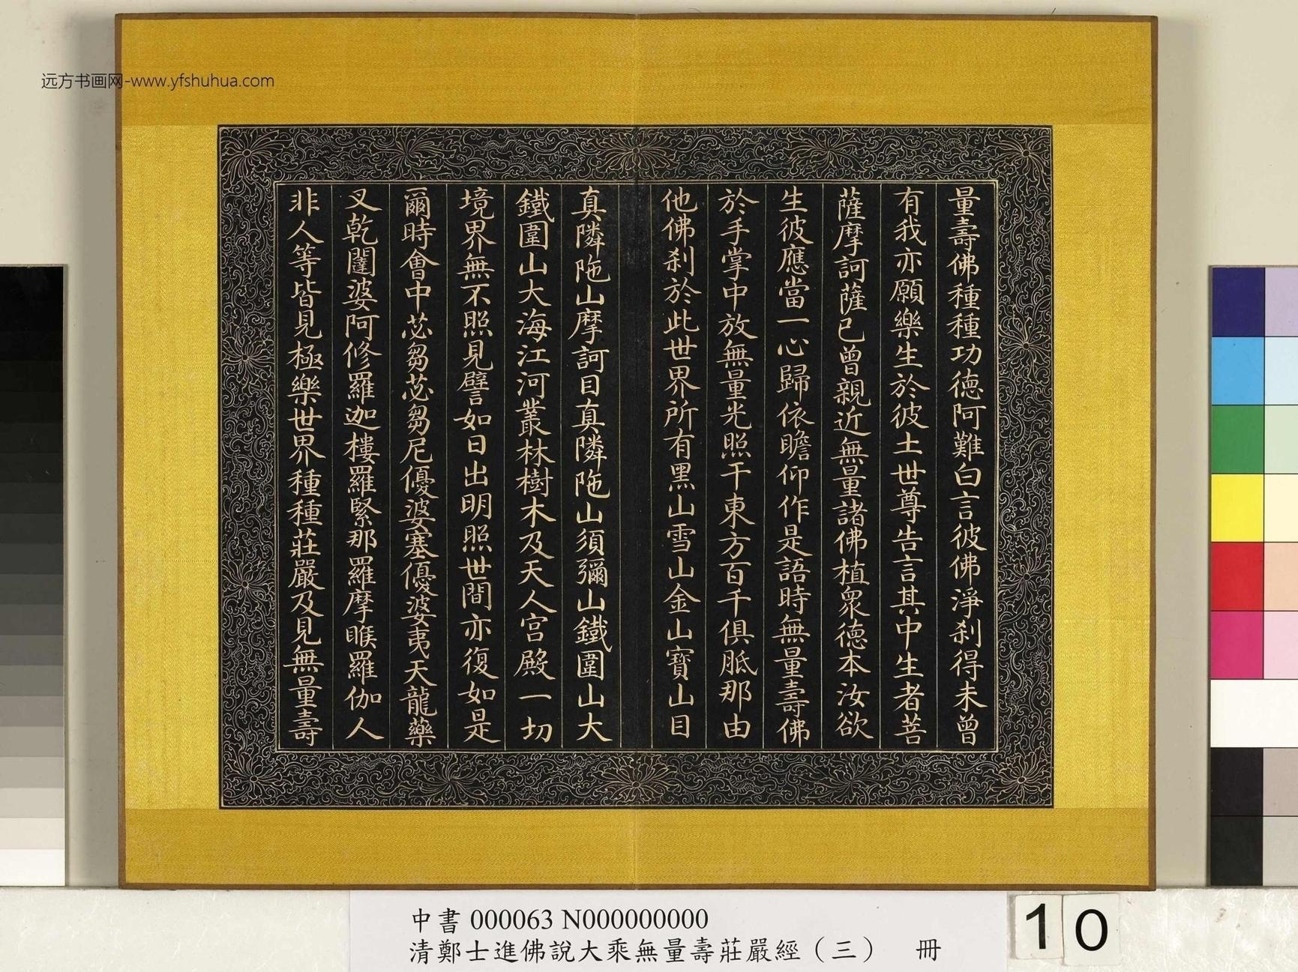 远方书画网-www.yfshuhua.com
量壽佛種種功德阿難白言彼佛淨刹得未曾
有我亦願樂生於彼土世尊告言其中生者菩
薩摩訶薩已曾親近無量諸佛植眾德本汝欲
生彼應當一心歸依瞻仰作是語時無量壽佛
於手掌中放無量光照于東方百千俱胝那由
他佛刹於此世界所有黑山雪山金山寶山目
真隣陁山摩訶目真隣陁山須彌山鐵圍山大
鐵圍山大海江河叢林樹木及天人宮殿一切
境界無不照見譬如日出明照世間亦復如是
爾時會中苾芻苾芻尼優婆塞優婆夷天龍藥
叉乾闥婆阿修羅迦樓羅緊那羅摩睺羅伽人
非人等皆見極樂世界種種莊嚴及見無量壽
中書 000063 N000000000
清鄭士進佛說大乘無量壽莊嚴經（三） 冊
10